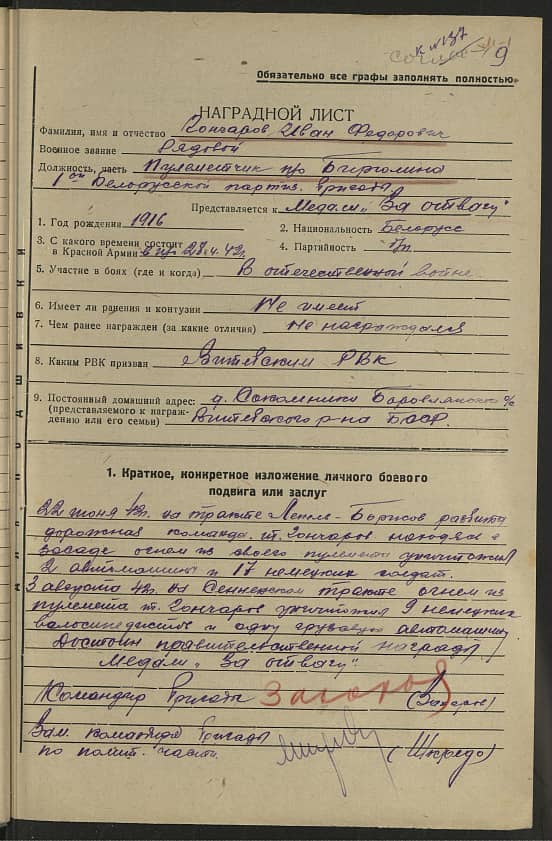 к №137
9
Обязательно все графы заполнять полностью.
НАГРАДНОЙ ЛИСТ
Фамилия, имя и отчество Гончаров Иван Федорович
Военное звание Рядовой
Должность, часть Пулеметчик п/о Бирюлина
1ой Белорусской партиз. Бригады
Представляется к Медали „За отвагу"
1. Год рождения 1916 2. Национальность Белорусс
3. С какого времени состоит
в Красной Армии в п/о 28.4.42г. 4. Партийность б/п
5. Участие в боях (где и когда) В отечественной войне
6. Имеет ли ранения и контузии Не имеет
7. Чем ранее награжден (за какие отличия) Не награждался
8. Каким РВК призван Витебским РВК
9. Постоянный домашний адрес: д. Сокольники Боровлянского с/с
(представляемого к награж-
дению или его семьи) Витебского р-на БССР.
1. Краткое, конкретное изложение личного боевого
подвига или заслуг
22 июня 42г. на тракте Лепель-Борисов развита
дорожная команда. т. Гончаров находясь в
засаде огнем из своего пулемета уничтожил
2 автомашины и 17 немецких солдат.
3 августа 42г. на Сенненском тракте огнем из
пулемета т. Гончаров уничтожил 9 немецких
велосипедистов и одну грузовую автомашину
Достоин правительственной награды
Медали „За отвагу".
Командир Бригады Захаров (Захаров)
Зам. командира Бригады
по полит. части. (Шкредо)